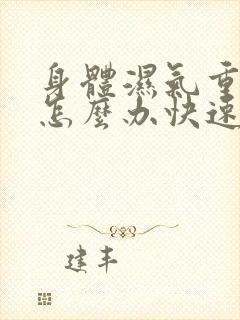 身體濕氣重
怎麼办快速
建丰